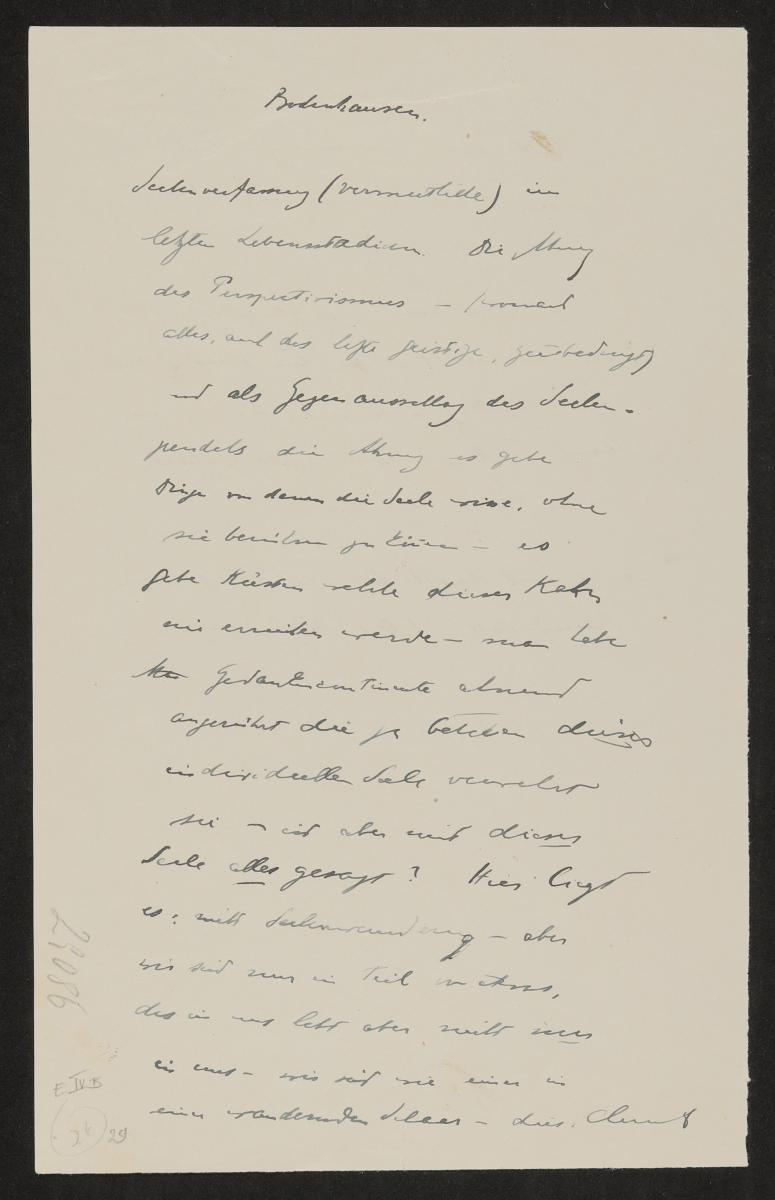 Bodenhausen.
Seelenverfassung (vermuthliche) im
letzten Lebensstadium. Die Ahnung
des Perspectivismus –
alles, auch das letzte geistige,
und als Gegenausschlag des Seelen-
pendels die Ahnung es gebe
Dinge von denen die Seele wisse, ohne
sie berühren zu können – es
gebe Küsten welche dieser Kahn
nie erreichen werde – man habe
Gedankencontinente ahnend
angerührt die zu betreten dieser
individuellen Seele verwehrt
sei – ist aber mit dieser
Seele alles gesagt? Hier liegt
es: nicht Seelenwanderung – aber
wir sind nur ein Teil von etwas,
das in uns lebt aber nicht nur
in uns – wir sind wie einer in
einer wandernden Schaar – dies.
28056
E IV B
26 29